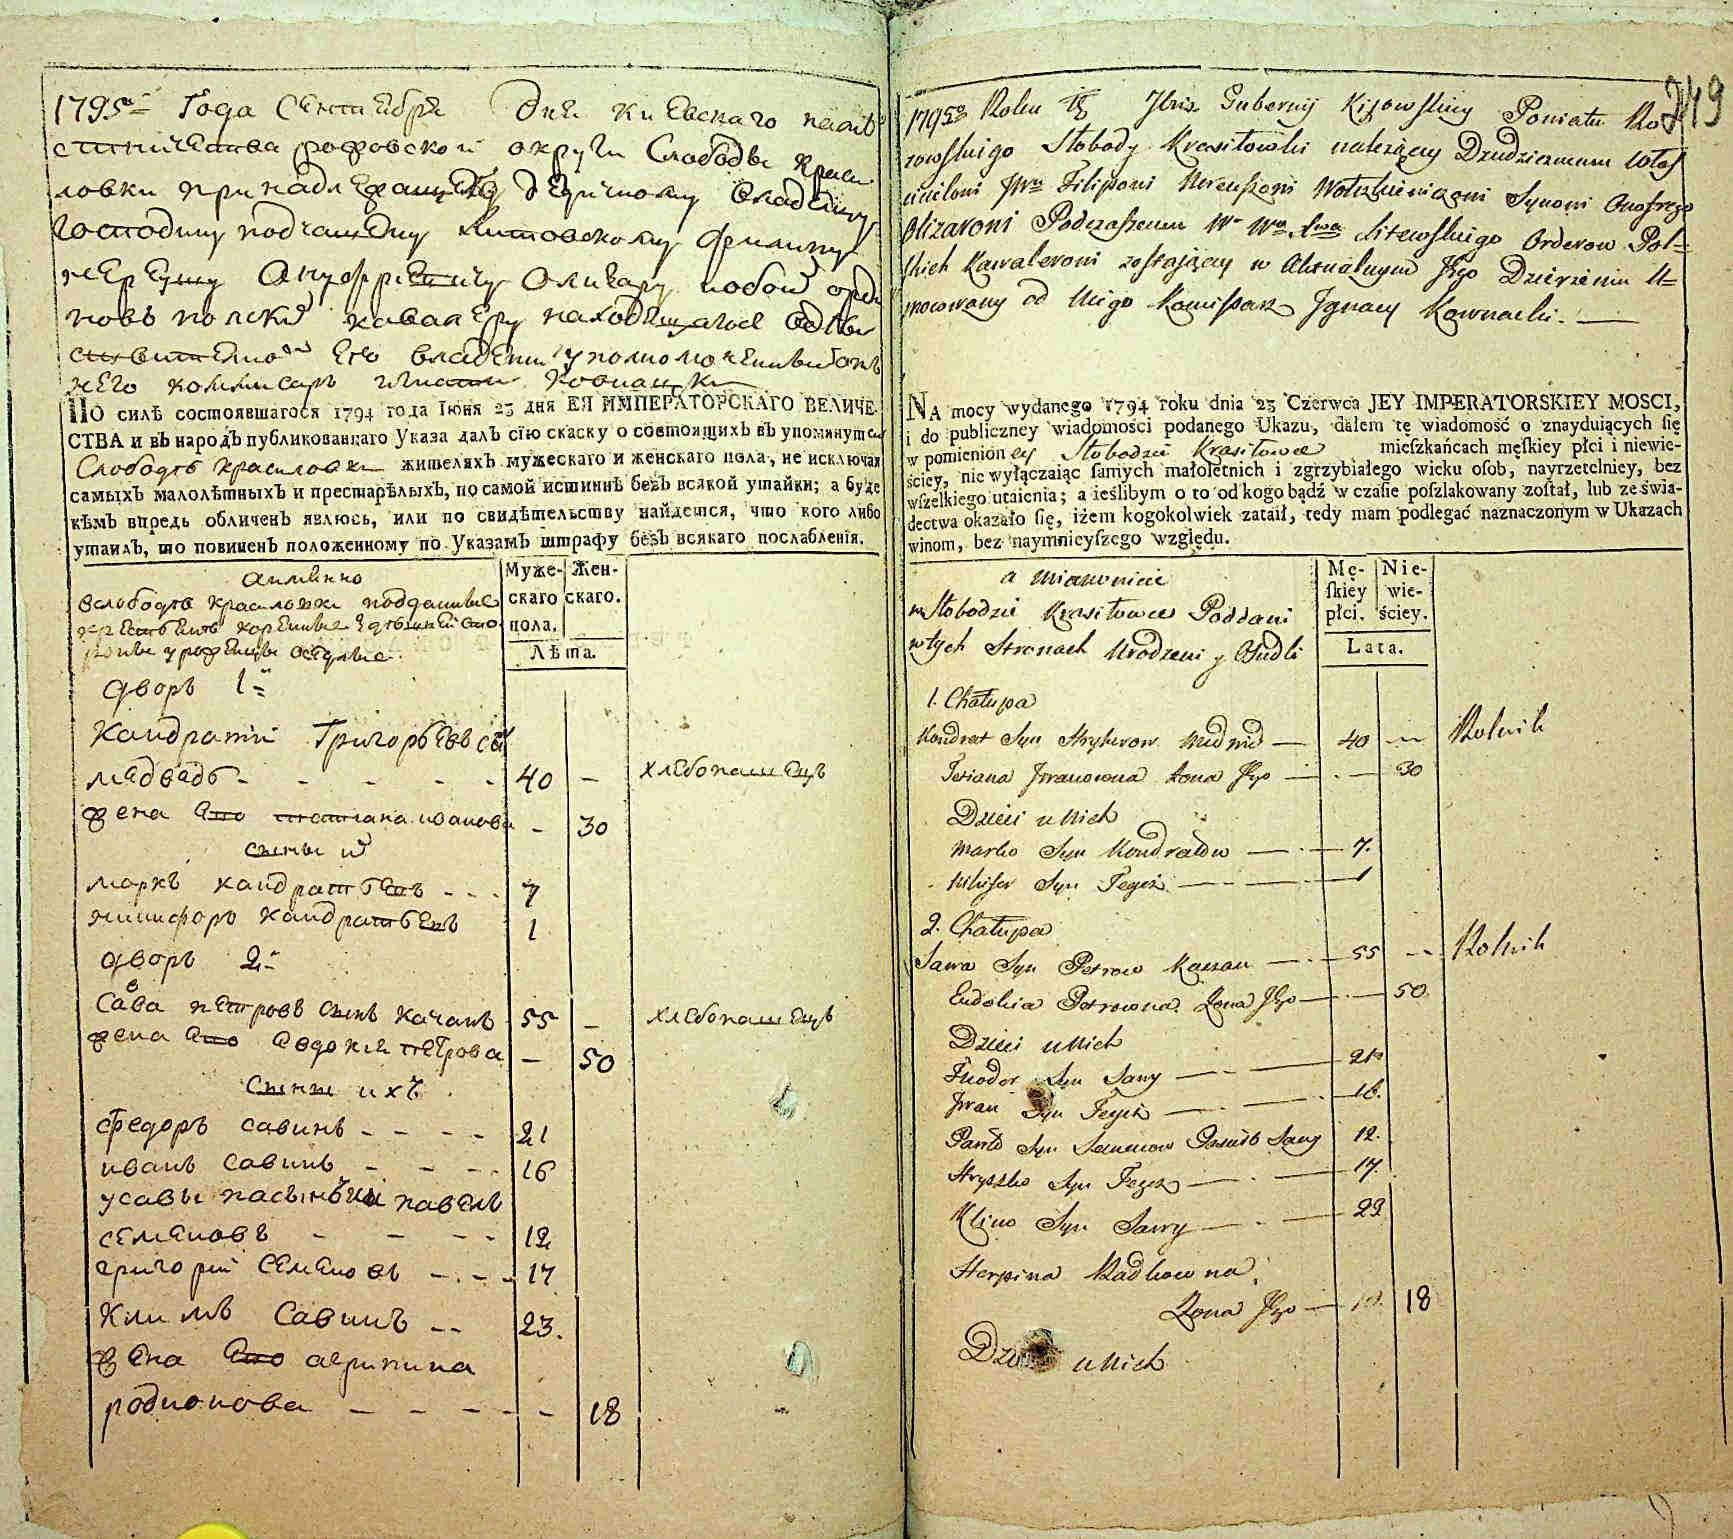 1795го Года Сентебря Дня Киевскаго намѣ
стничества рофовской округи Слободы Краси
ловки принадлежащей дедичному владелцу
господину подчашему Литовскому Филипу
Нереушу Ануфриевичу Олизару обоихъ орде
новъ полскихъ кавалеру находящуюся
его владении уполномоченный отъ
него коммисаръ Игнатий Ковнацки
ПО силѣ состоявшагося 1794 года Іюня 23 дня ЕЯ ИМПЕРАТОРСКАГО ВЕЛИЧЕ-
СТВА и въ народъ публикованнаго Указа далъ сїю скаску о состоящихъ въ упомянутой
Слободѣ Красиловки жителяхъ мужескаго и женскаго пола, не исключая
самыхъ малолѣтныхъ и престарѣлыхъ, по самой истиннѣ безъ всякой утайки; а буде
кѣмъ впредь обличенъ явлюсь, или по свидѣтельству найдется, что кого либо
утаилъ, то повиненъ положенному по Указамъ штрафу безъ всякаго послабленїя.
аимянно
Муже-
скаго
пола.
Жен-
скаго.
Лѣта.
вслободѣ красиловки подданные
урожденцы
дворъ 1й
Кандратий Григорьевъ сынъ
медведь - - - - - 40 —
хлебопашецъ
жена его татиана иванова - 30
сыны их
маркъ кандратьевъ - - - 7
никифоръ кандратьевъ 1
дворъ 2й
Сава петровъ сынъ качанъ 55 —
хлебопашецъ
жена его авдокия петрова — 50
сыны ихъ
федоръ савинъ - - - - 21
иванъ савинъ - - - - 16
усавы пасынки павелъ
семеновъ - - - - 12
григорий семеновъ - - - 17
Климъ Савинъ - - 23.
жена его агрипина
родионова - - - - - 18
249
1795go Roku Jbris Guberny Kijowskiey Powiatu Ro
rowskiego Słobody Krasiłowki należącey Dziedzicznemu Włas
cicielowi JWu Filiponi Nereuszowi Wołczkiewiczowi Synowi Onofrego
Olizarowi Podczaszemu Wo Wo Xwa Litewskiego Orderow Pol=
skich Kawalerowi zostającey w Aktualnym Jego Dzierżeniu U=
mocowany od Niego Komisarz Jgnacy Kownacki. —
NA mocy wydanego 1794 roku dnia 23 Czerwca JEY IMPERATORSKIEY MOSCI,
i do publiczney wiadomości podanego Ukazu, dałem tę wiadomość o znayduiących się
w pomienioney Słobodzie Krasiłowce mieſzkańcach męſkiey płci i niewie-
ściey, nie wyłączaiąc ſamych małoletnich i zgrzybiałego wieku oſob, nayrzetelniey, bez
wſzelkiego utaienia; a ieślibym o to od kogo bądź w czaſie poſzlakowany zoſtał, lub ze świa-
dectwa okazało się, iżem kogokolwiek zataił, tedy mam podlegać naznaczonym w Ukazach
winom, bez naymnieyſzego względu.
a mianowicie
Mę-
ſkiey
płci.
Nie-
wie-
ściey.
Lata.
w Słobodzie Krasiłowce Poddani
w tych Stronach Urodzeni y Osiedli
1. Chałupa
Kondrat Syn Hryhorow Medwid — 40 —
Rolnik
Tetiana Jwanowna Żona Jego — . — 30
Dzieci u Nich
Marko Syn Kondratów — . — 7.
Nikifor Syn Tegoż — . — 1
2. Chałupa
Sawa Syn Petrow Kaczan — . — 55 --
Rolnik
Eudokia Petrowna Żona Jego — . — 50
Dzieci u Nich
Fiodor Syn Sawy — . — 21
Jwan Syn Tegoż — . — 16.
Pawło Syn Semenow Pasierb Sawy 12.
Hryszko Syn Tegoż — . — 17.
Klim Syn Sawy — . — 23
Horpina Radkowna,
Żona Jego — 18
Dzieci u Nich